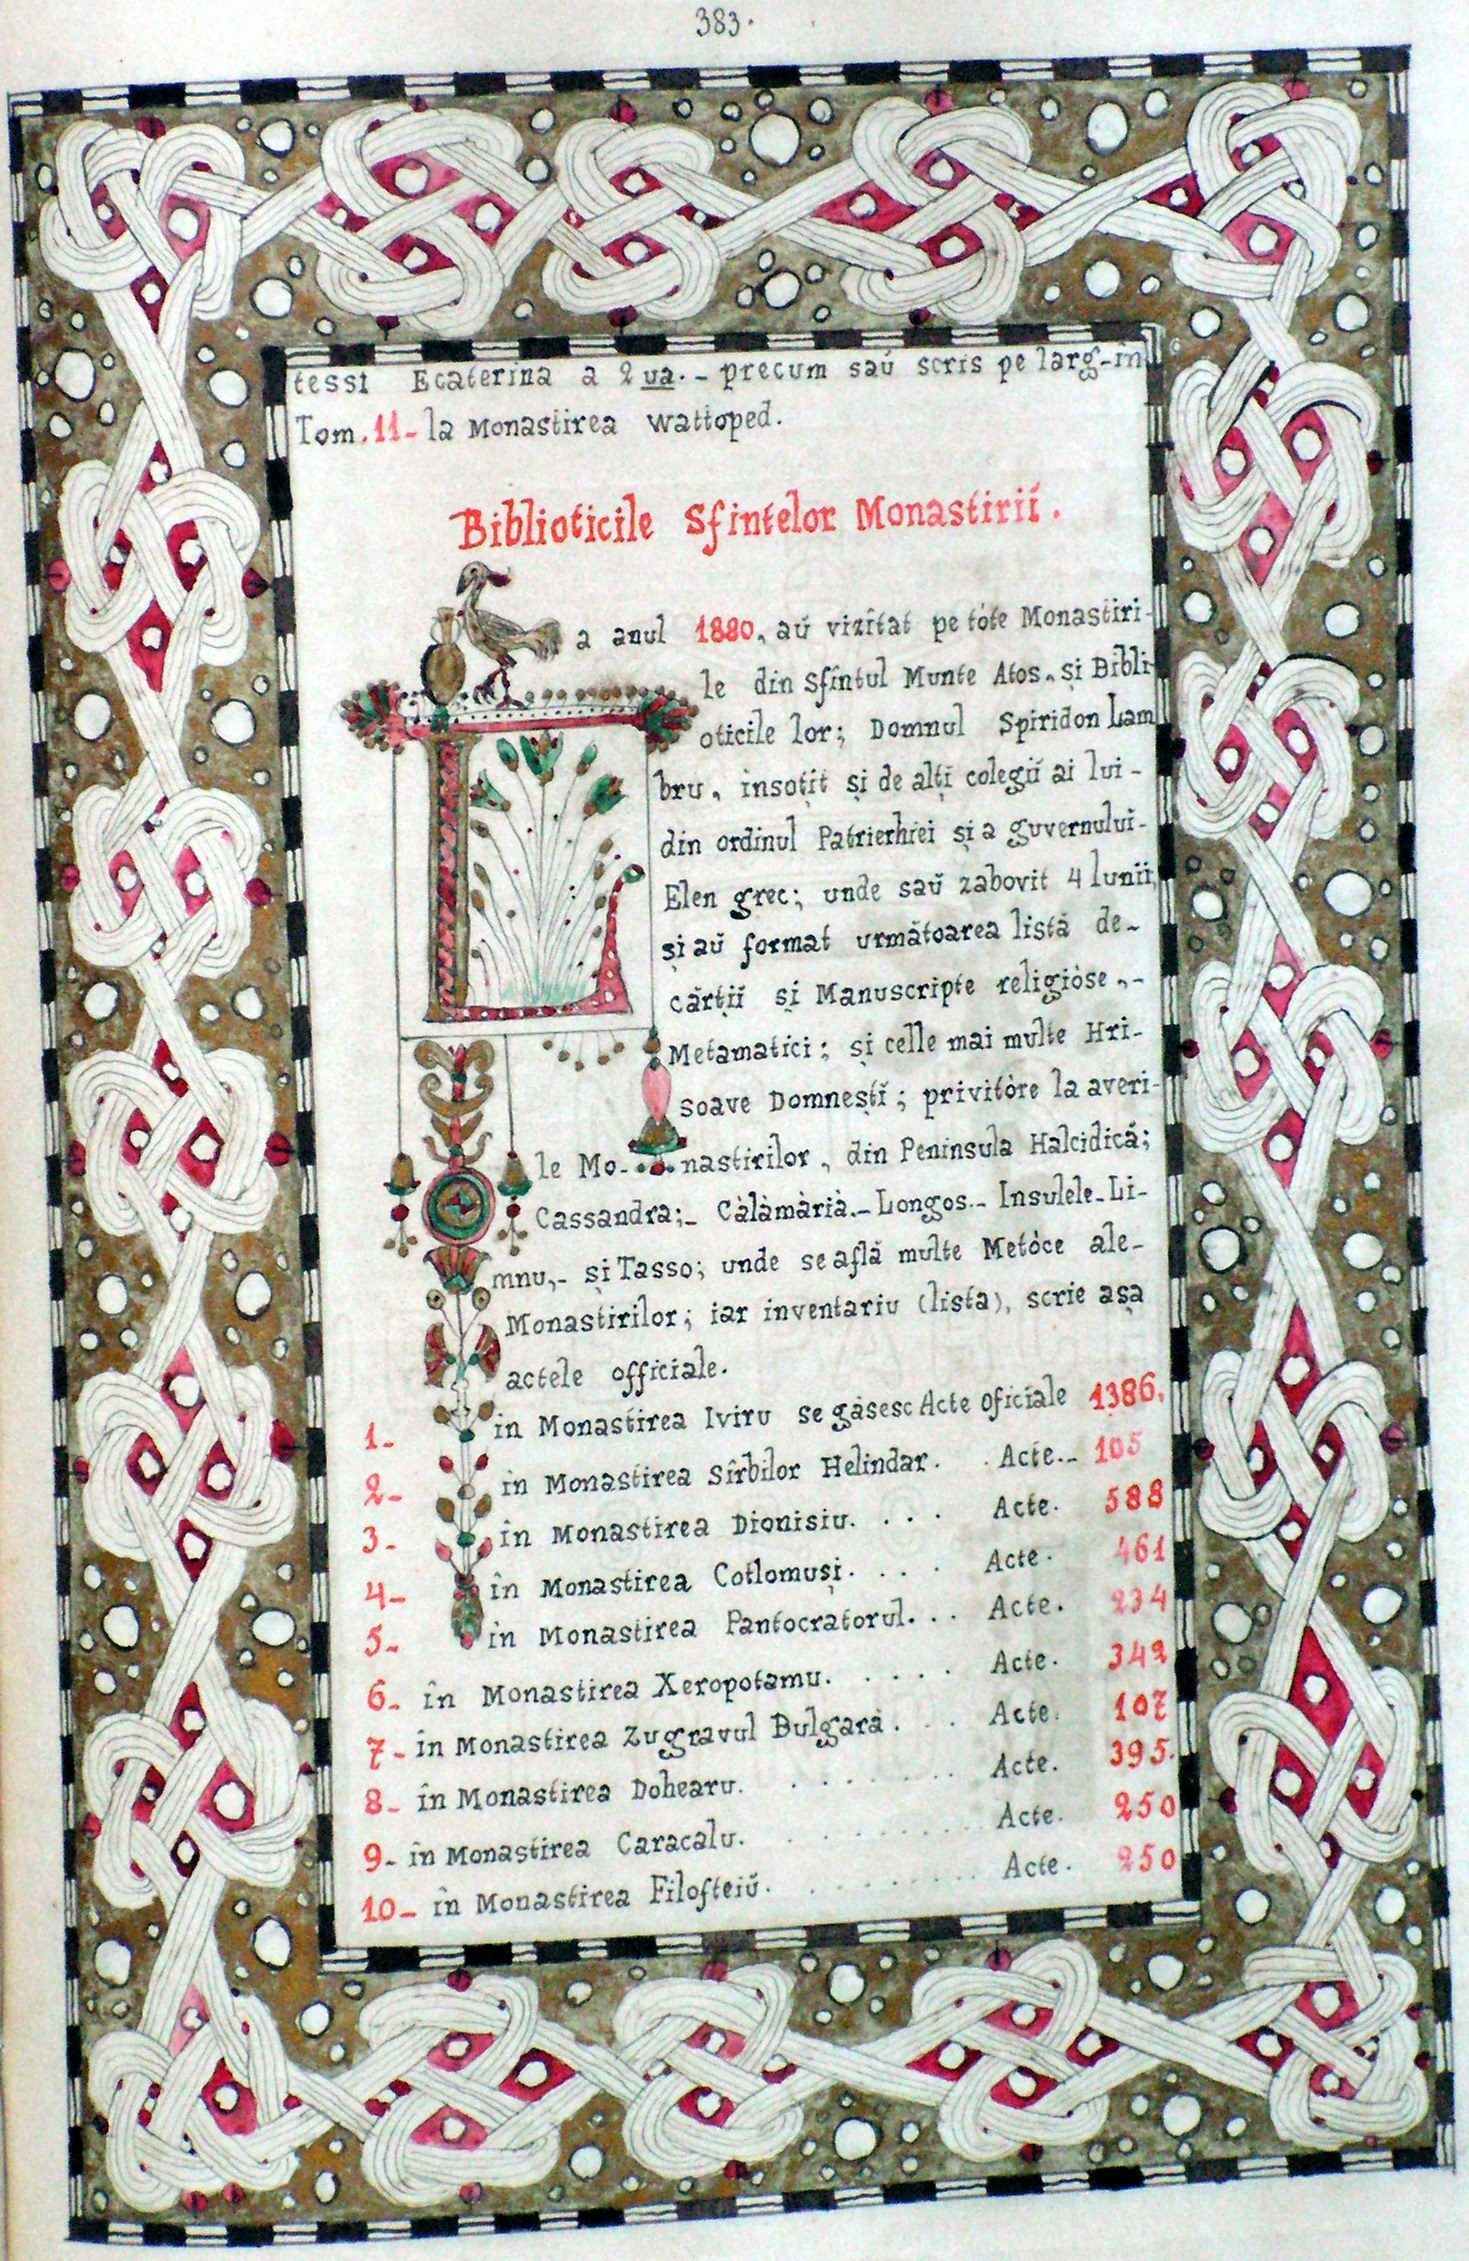 383.
tessi Ecaterina a 2 ua. - precum saŭ scris pe larg - în
Tom. 11 - la Monastirea wattoped.
Biblioticile Sfintelor Monastirii.
La anul 1880, aŭ vizitat pe tóte Monastiri-
le din sfîntul Munte Atos, și Bibli-
oticile lor; Domnul Spiridon Lam
bru, insoțit și de alți colegiĭ ai lui -
din ordinul Patrierhiei și a guvernului -
Elen grec; unde saŭ zabovit 4 lunii,
și aŭ format următoarea listă de -
cărțiĭ și Manuscripte religiòse, -
Metamatici; și celle mai multe Hri-
soave Domneștĭ; privitòre la averi-
le Mo- nastirilor, din Peninsula Halcidică;
Cassandra; - Càlàmàrià. - Longos. - Insulele - Li-
mnu, - și Tasso; unde se află multe Metòce ale -
Monastirilor; iar inventariu (lista), scrie așa
actele officiale.
1 - in Monastirea Iviru se gàsesc Acte oficiale 1386.
2 - in Monastirea sîrbilor Helindar. . Acte. - 105
3 - în Monastirea Dionisiu. . . . Acte. 588
4 - în Monastirea Cotlomuși. . . . Acte. 461
5 - in Monastirea Pantocratorul. . . Acte. 234
6 - în Monastirea Xeropotamu. . . . . Acte. 342
7 - în Monastirea Zugravul Bulgarà . . . Acte. 107
8 - în Monastirea Dohearu. . . . . . . . Acte. 395.
9 - în Monastirea Caracalu. . . . . . . . Acte. 250
10 - în Monastirea Filofteiŭ. . . . . . . . Acte. 250